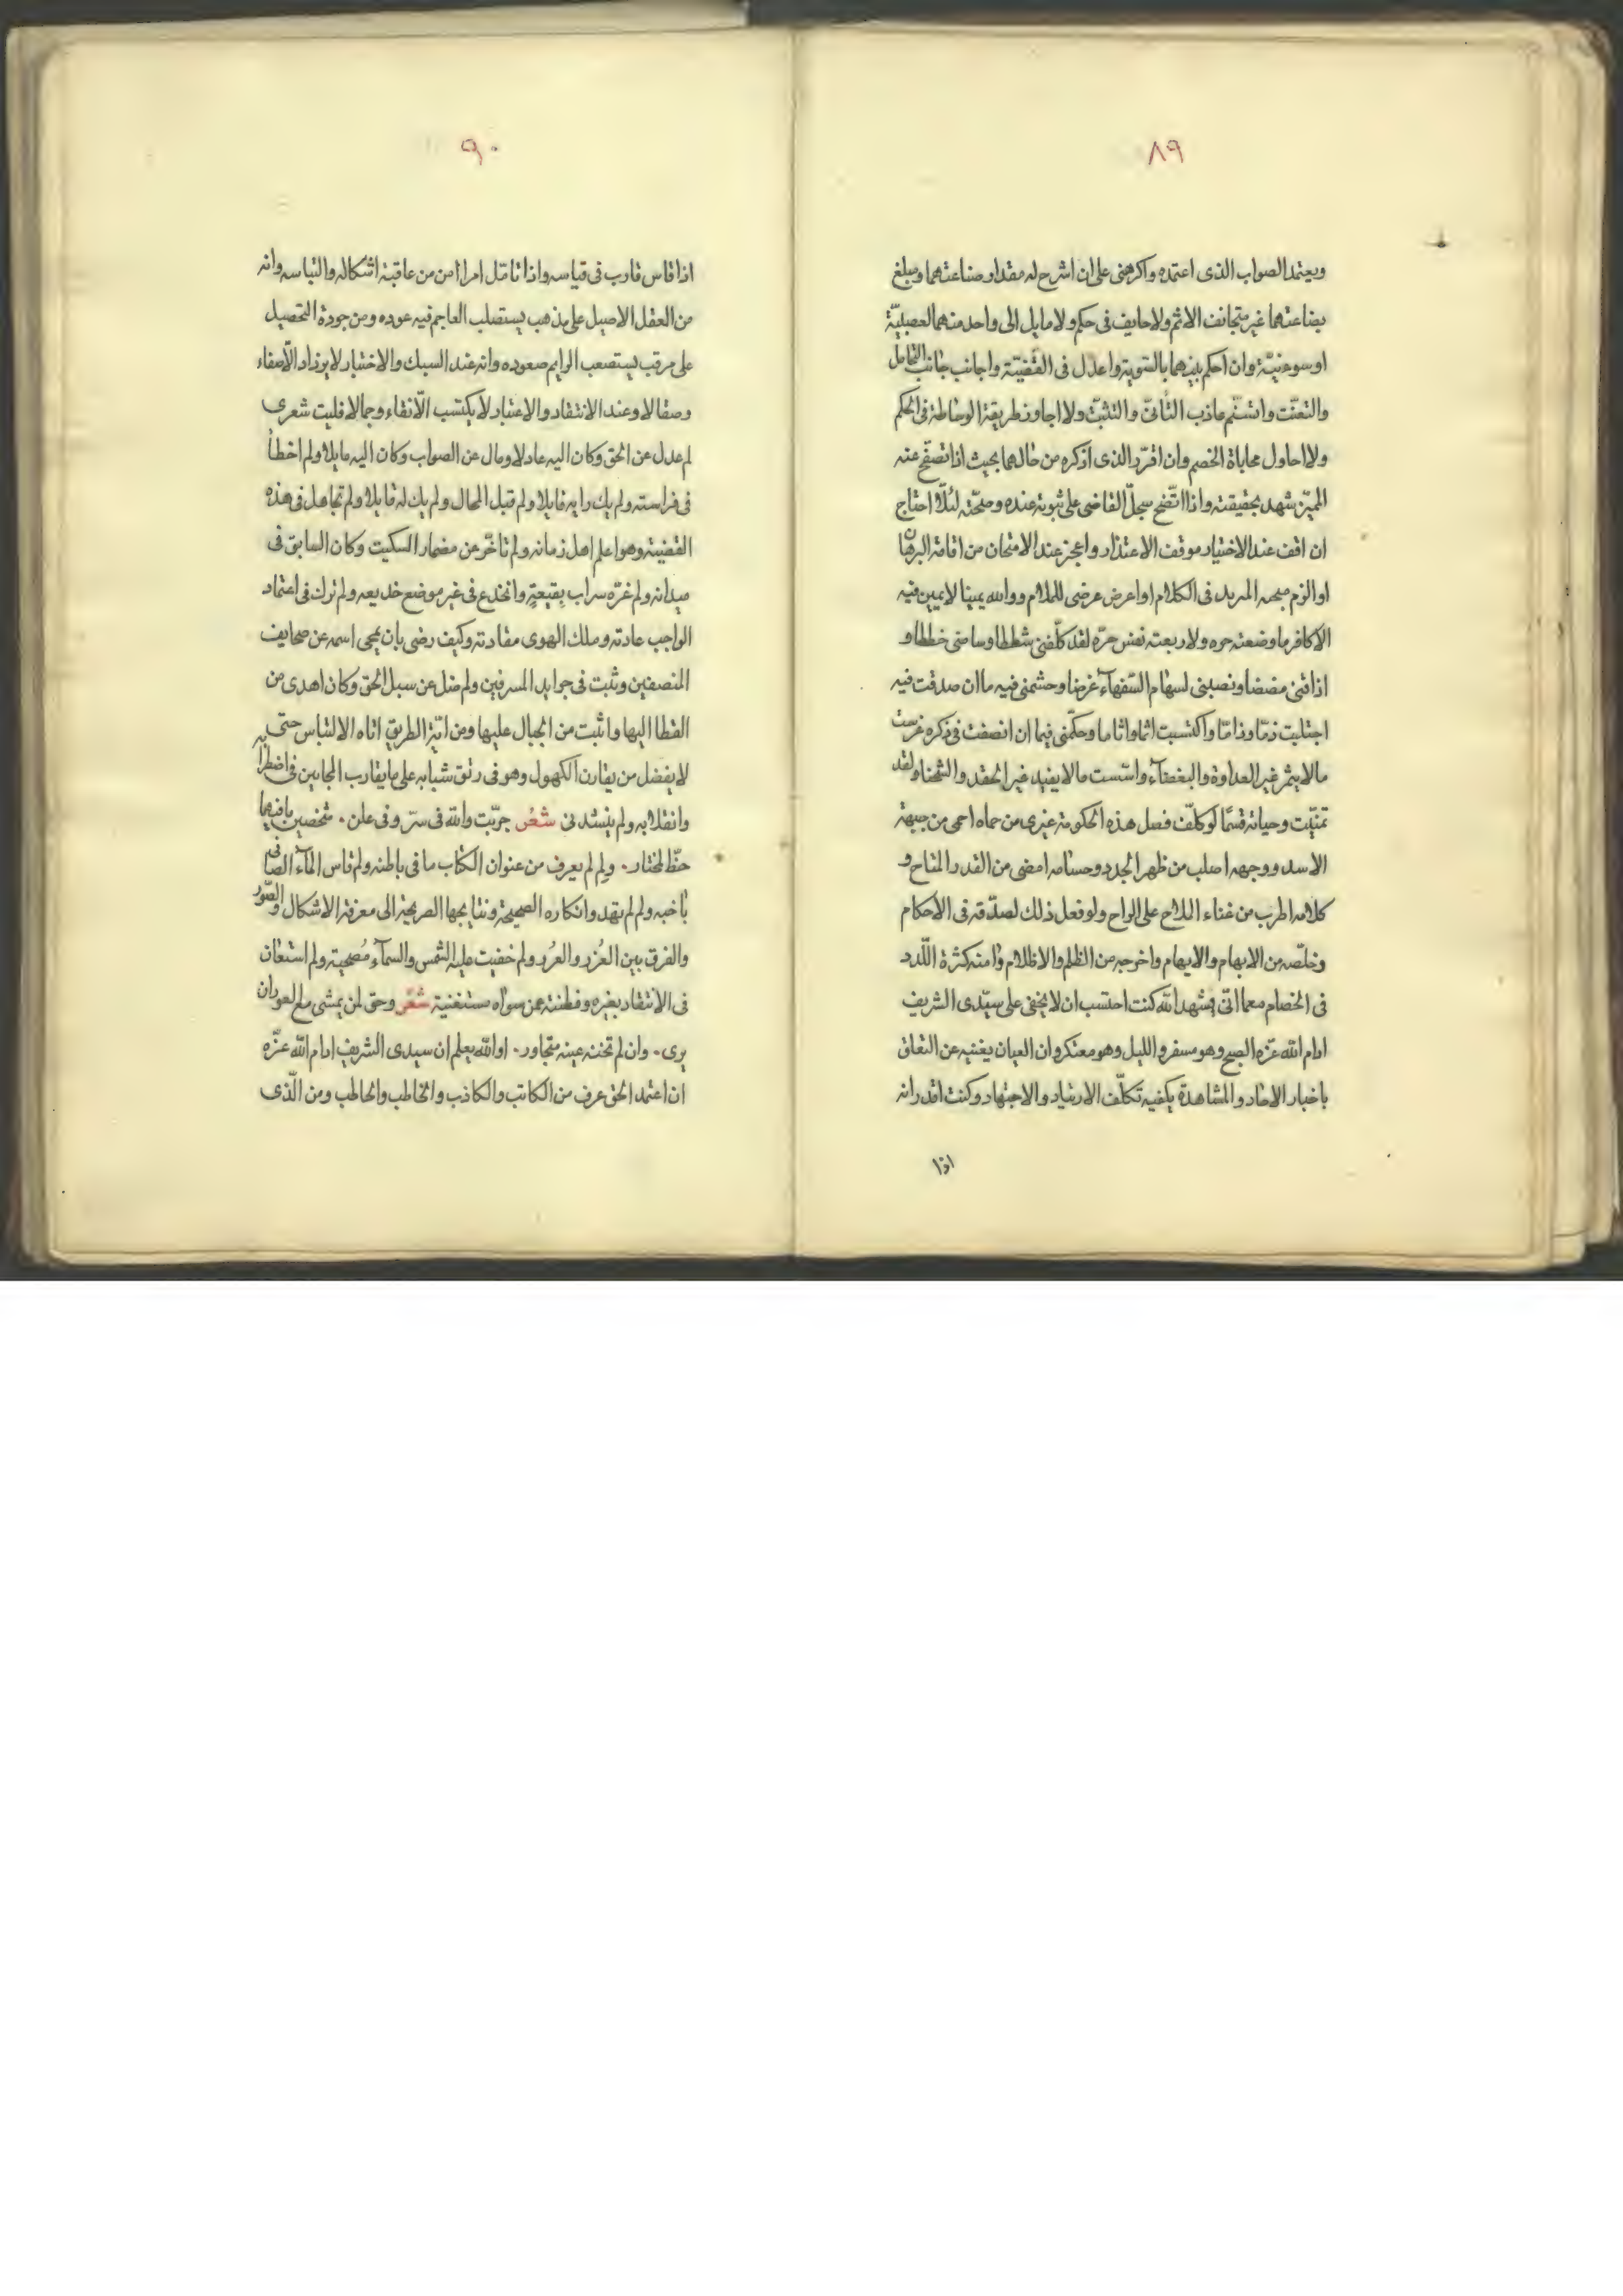 ٨٩
ويعتمد الصواب الذى اعتمده واكرهنى على ان اشرح له مقدار صناعتهما ومبلغ
بضاعتهما غير متجانف الاثم ولا حايف فى حكم ولا مايل الى واحد منهما لعصبيّة
او سوء نيّة وان احكم بينهما بالتسوية واعدل فى القضيّة واجانب جانب التحامل
والتعنّت واتسنّم غاذب التأنّى والتثبّت ولا اجاوز طريقة الوساطة فى الحكم
ولا احاول محاباة الخصم وان اقرّر الذى اذكره من حالهما بحيث اذا تصفّح عنه
المميّز شهد بحقيقته واذا اتّضح سجلّ القاضى على ثبوته عنده وصحّته لئلّا احتاج
ان اقف عند الاختيار موقف الاعتذار واعجز عند الامتحان من اقامة البرهان
او الزم المربد فى الكلام او اعرض عرضى للملام ووالله يمينا لا يمين فيه
الا كافر ما وضعته حره ولا ربعته نفس حرّه لقد كلّفنى شططا وسامنى خططا و
اذاقنى مضضا ونصبنى لسهام السّفهآء غرضا وحشمنى فيه ما ان صدقت فيه
اجتلبت ذمّا وذامّا واكتسبت اثما واثاما وحكّمنى فيما ان انصفت فى ذكره غرست
ما لا يثمر غير العداوة والبغضآء واسّست ما لا يفيد غير الحقد والشحنا ولقد
تمنّيت وحياته قسمًا لو كلّف فصل هذه الحكومة غيرى من حماه احمى من جبهة
الاسد ووجهه اصلب من ظهر الجدد وحسامه امضى من القدر المتاح و
كلامه اطرب من غناء الملاح على الراح ولو فعل ذلك لصدّقه فى الاحكام
وخلّصه من الابهام والايهام واخرجه من الظلم والاظلام وامنه كثرة اللّدد
فى الخصام معما انّى يشهد الله كنت احتسب ان لا يخفى على سيّدى الشريف
ادام الله عزّه الصبح وهو مسفر والليل وهو معتكر وان العيان يغنيه عن التعلق
باخبار الاحاد والمشاهدة يكفيه تكلّف الارتياد والاجتهاد وكنت اقدر انه
اذا
٩٠
اذا قاس قارب فى قياسه واذا تامّل امرا امن من عاقبة اشكاله والتباسه وانه
من العقل الاصيل على مذهب يستصلب العاجم فيه عوده ومن جودة التحصيل
على مرقب يستصعب الرايم صعوده وانه عند السبك والاختبار لا يزداد الّا صفاء
وصقالا وعند الانتقاد والاعتبار لا يكتسب الّا نقاء وجمالا فليت شعرى
لم عدل عن الحق وكان اليه عادلا ومال عن الصواب وكان اليه مايلا ولم اخطأ
فى فراسته ولم يك رايه فايلا ولم قبل المحال ولم يك له قابلا ولم تجاهل فى هذه
القضيّة وهو اعلم اهل زمانه ولم تاخّر عن مضمار السكيت وكان السابق فى
ميدانه ولم غرّه سراب بقيعةٍ وانخدع فى غير موضع خديعه ولم ترك فى اعتماد
الواجب عادته وملك الهوى مقادته وكيف رضى بان يمحى اسمه عن صحايف
المنصفين وثبت فى جرايد المسرفين ولم ضل عن سبل الحق وكان اهدى من
القطا اليها واثبت من الجبال عليها ومن ايّة الطريق اتاه الالتباس حتى
لا يفضل من يقارن الكهول وهو فى رتق شبابه على ما يقارب المجانين فى اضطرابه
وانقلابه ولم ينشدنى شعر جرّبت والله فى سرّ وفى علن ٠ شخصين فيهما
حظّ لمختار ٠ ولم لم يعرف من عنوان الكتاب ما فى باطنه ولم قاس المآء الصافى
ولم لم تهد وافكاره الصحيحة ونتايجها الصريحة الى معرفة الاشكال والصّور
والفرق بين الغُرَر والعُرَر ولم خفيت عليه الشمس والسمآء مُصحية ولم استعان
فى الانتقاد بغيره وفطنته عن سواه مستغنية شعر وحق لمن يمشى مع العوران
يرى ٠ وان لم تخنه عينه متجاور ٠ او الله يعلم ان سيدى الشريف ادام الله عزّه
ان اعتمد الحق عرف من الكاتب والكاذب والخاطب والحاطب ومن الّذى